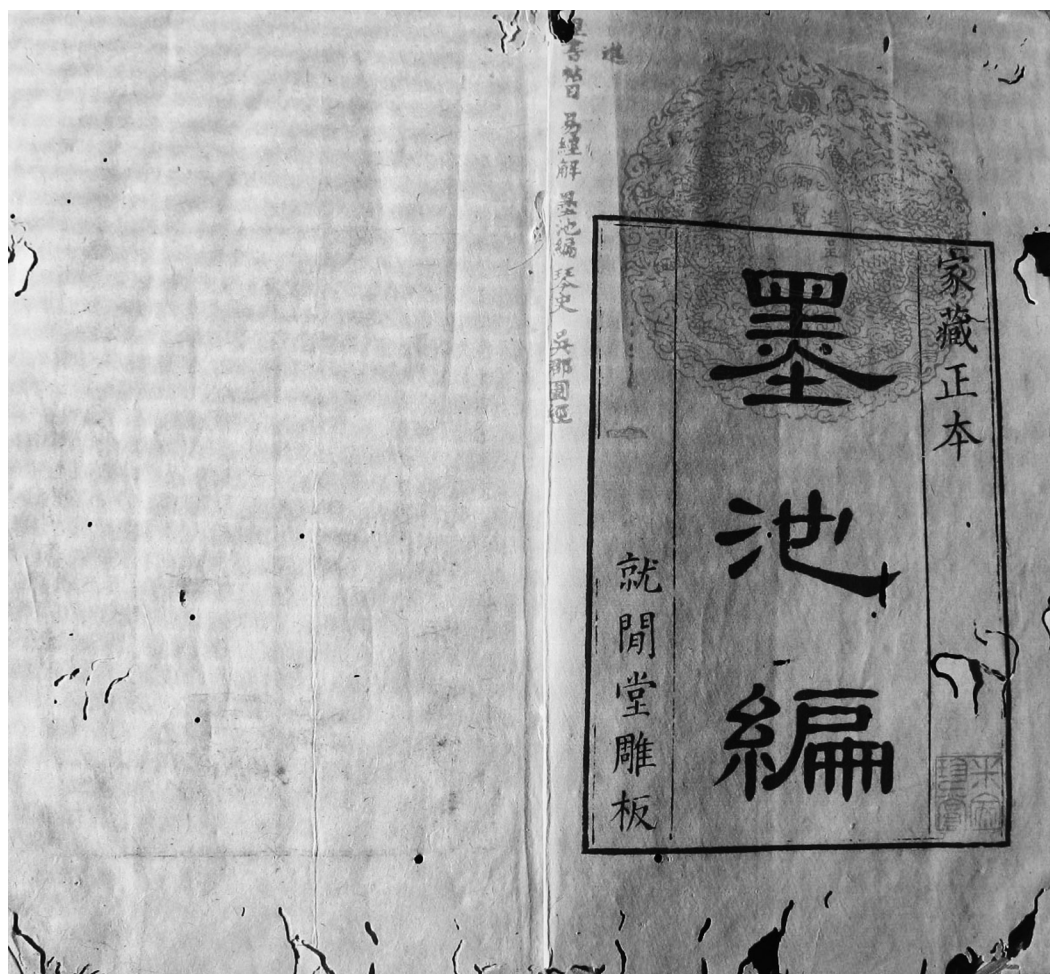 家藏正本
墨池編
就閒堂雕板
御覽
進呈
進
易經解 墨池編 琴史 吳郡圖經